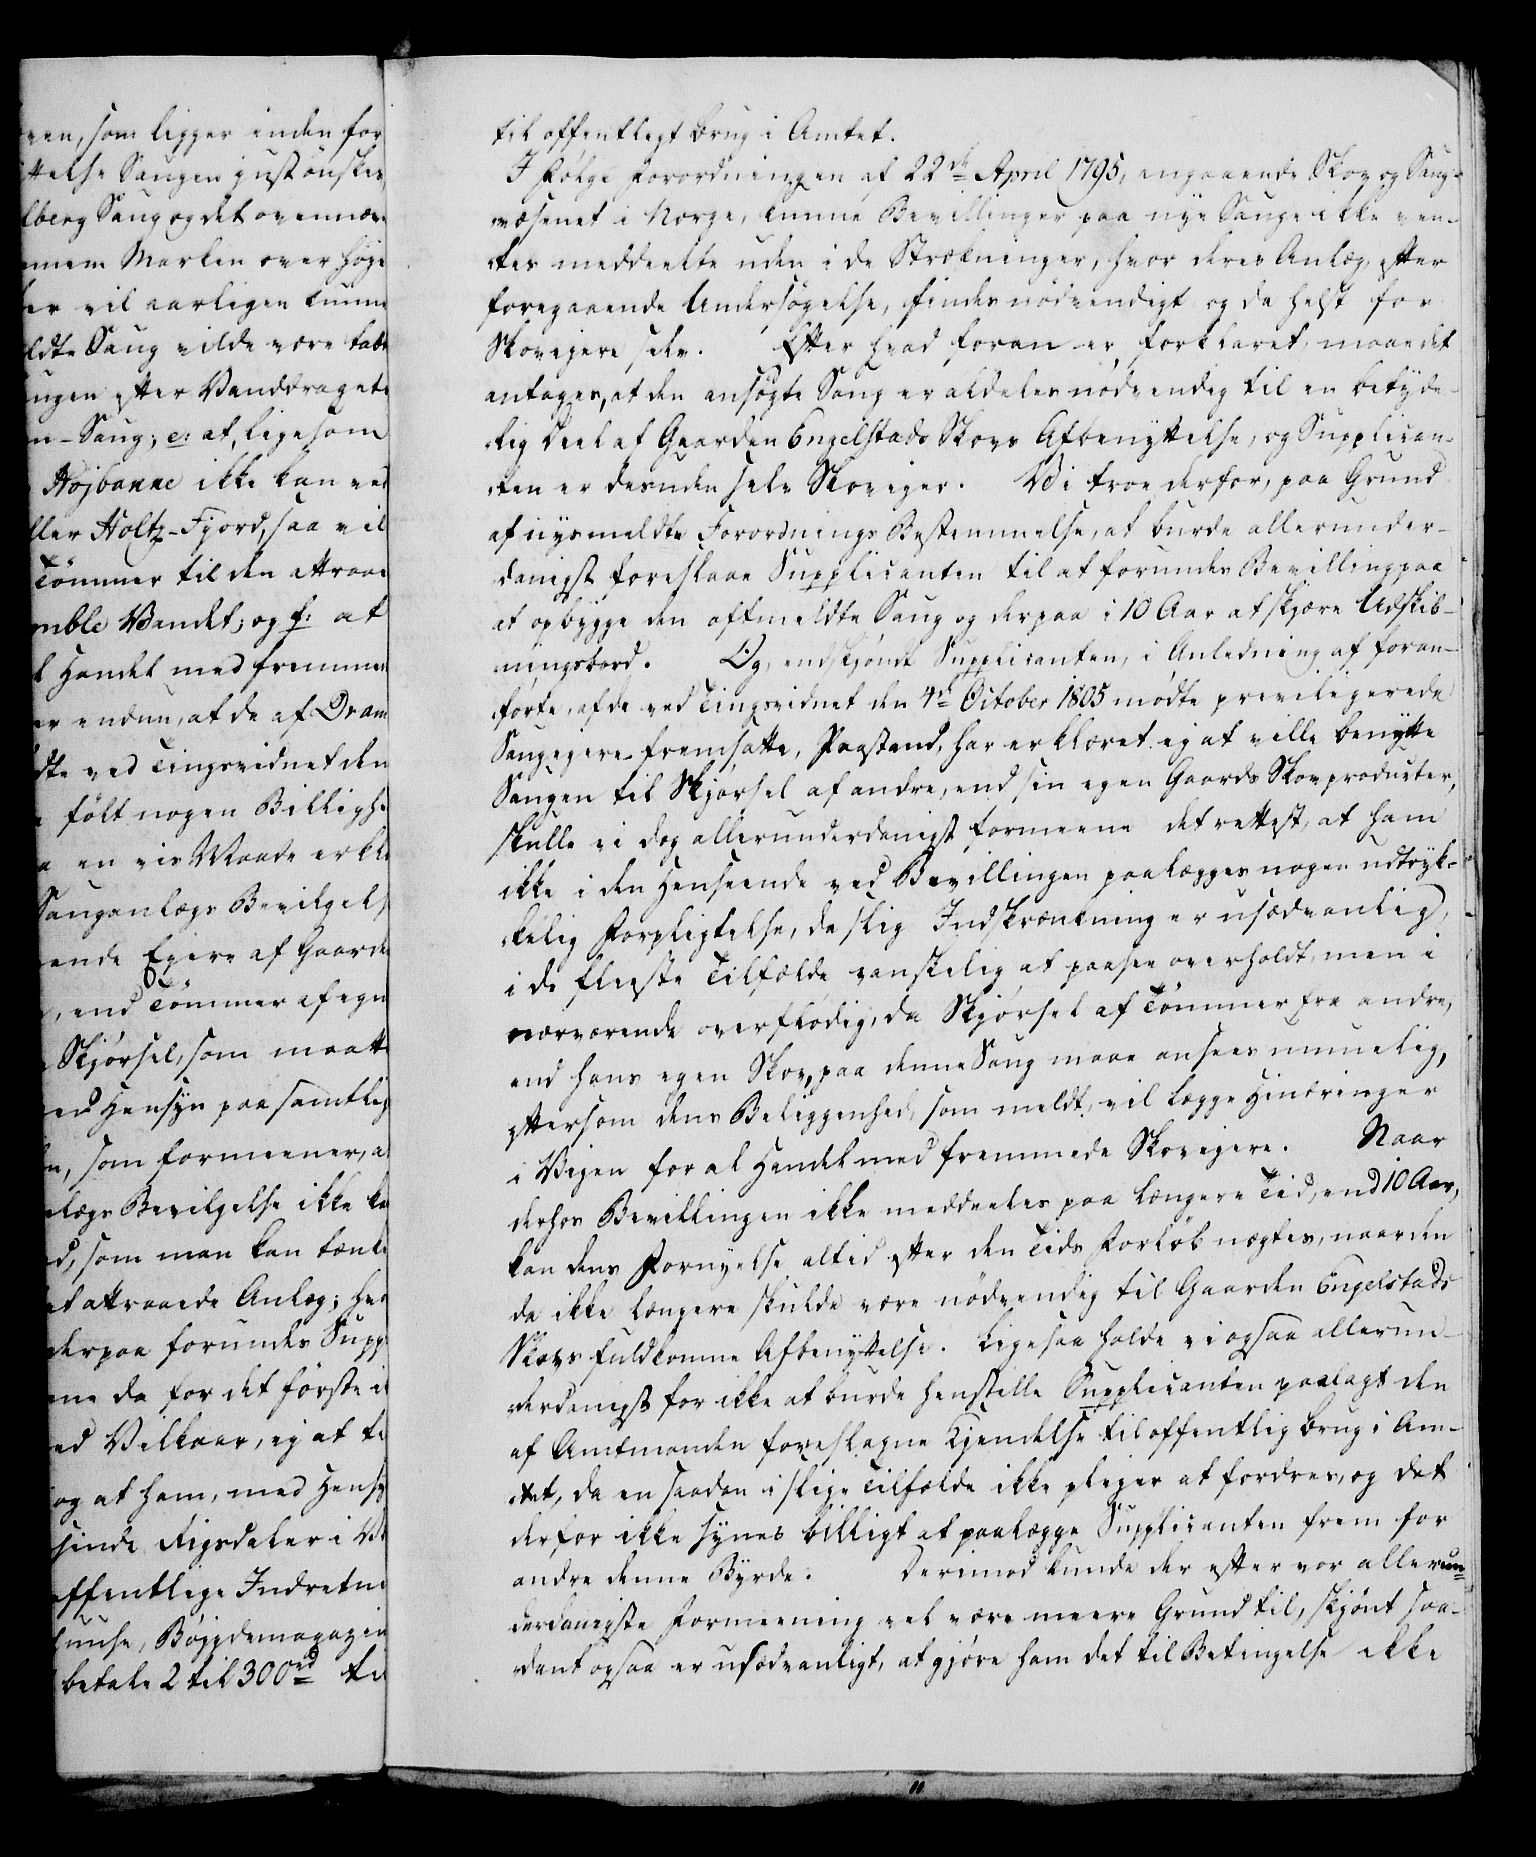 een, som ligger inden for
ttelse Saugen just ønskes
lberg Saug og det ovennæv
nnem Marken over høje
er vil aarligen kunne
ldte Saug vilde være kaab
ugen efter Vanddragets
n-Saug; e: at, ligesom
Højbanne ikke kan ved
ller Holtz-Fjord, saa vil
Tømmer til den attraae
mble Vandet; og f: at
l Handel med fremmen
er endnu, at de af Dram
dte ved Tingsvidnet den
følt nogen Billigh
a en vis Maade erkl
Sauganlægs Bevilgel
ende Ejere af Gaarde
, end Tømmer af egn
Skjørsel, som maatt
ed Hensyn paa samtlig
n, som formeener, a
lægs Bevilgelse ikke ka
d, som man kan tænk
et attraaede Anlæg; hv
derpaa forundes Supp
ne da for det første i
ed Vilkaar, ej at ti
og at ham, med Hensy
sinde Rigsdaler i V
ffentlige Indretni
huuse, Bøjgdemagazin
betale 2 til 300 rd ti
til offentligt Brug i Amtet.
I Følge Forordningen af 22de April 1795, angaaende Skov og Saug-
væsenet i Norge, kunne Bevillinger paa nye Sauge ikke ven-
tes meddeelte uden i de Strækninger, hvor deres Anlæg, efter
foregaaende Undersøgelse, findes nødvendigt og da helst for
Skovejere selv. Efter hvad foran er forklaret, maae det
antages, at den ansøgte Saug er aldeles nødvendig til en betyde-
lig Deel af Gaarden Engelstads Skovs Afbenyttelse, og Supplican-
ten er desuden selv Skovejer. Vi troe derfor, paa Grund
af nysmeldte Forordnings Bestemmelse, at burde allerunder-
danigst foreslaae Supplicanten til at forundes Bevilling paa
at opbygge den oftmeldte Saug og derpaa i 10 Aar at skjære Udskib-
ningsbord. Og, endskjøndt Supplicanten, i Anledning af foran-
førte, af de ved Tingsvidnet den 4de October 1805 mødte priviligerede
Saugejere fremsatte, Paastand, har erklæret ej at ville benytte
Saugen til Skjørsel af andre, end sin egen Gaards Skovproducter,
skulle vi dog allerunderdanigst formeene det rettest, at ham
ikke i den Henseende ved Bevillingen paalægges nogen udtryk-
kelig Forpligtelse, da slig Indskrænkning er usædvanlig,
i de fleeste Tilfælde vanskelig at paasee overholdt, men i
nærværende overflødig, da Skjørsel af Tømmer fra andre,
end hans egen Skov, paa denne Saug maae ansees umuelig,
eftersom dens Beliggenhed, som meldt, vil lægge Hindringer
i Vejen for al Handel med fremmede Skovejere. Naar
derhos Bevillingen ikke meddeeles paa længere Tid, end 10 Aar,
kan dens Fornyelse altid efter den Tids Forløb nægtes, naar den
da ikke længere skulde være nødvendig til Gaarden Engelstads
Skovs fuldkomne Afbenyttelse. Ligesaa holde vi ogsaa allerun-
derdanigst for ikke at burde henstille Supplicanten paalagt den
af Amtmanden foreslagne Kjendelse til offentlig Brug i Am-
tet, da en saadan i slige Tilfælde ikke plejer at fordres, og det
derfor ikke synes billigt at paalægge Supplicanten frem for
andre denne Byrde. Derimod kunde der efter vor allerun-
derdanigste Formeening vel være meere Grund til, skjønt saa-
dant ogsaa er usædvanligt, at gjøre ham det til Betingelse ikke